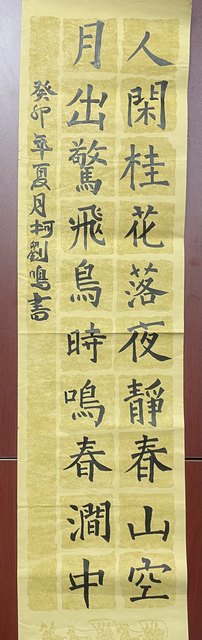 人閑桂花落夜靜春山空
月出驚飛鳥時鳴春澗中
癸卯年夏月柯劉鳴書